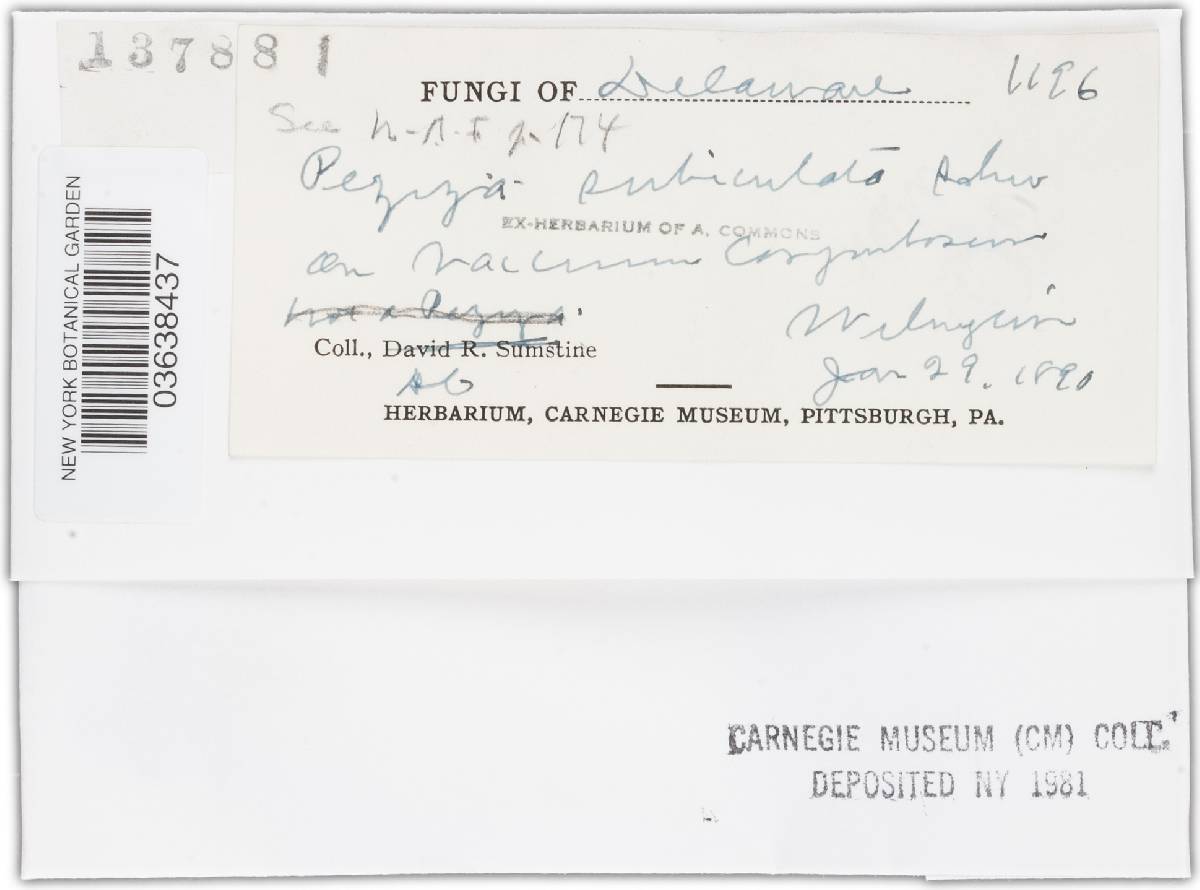 137881
FUNGI OF Delaware 1196
See N.A.F p. 174
Peziza subiculata Schw
EX-HERBARIUM OF A. COMMONS
on Vaccinium Corymbosum
not a Peziza.
Wilmington
Coll., David R. Sumstine
Jan 29. 1890
HERBARIUM, CARNEGIE MUSEUM, PITTSBURGH, PA.
NEW YORK BOTANICAL GARDEN
03638437
CARNEGIE MUSEUM (CM) COLL.
DEPOSITED NY 1981